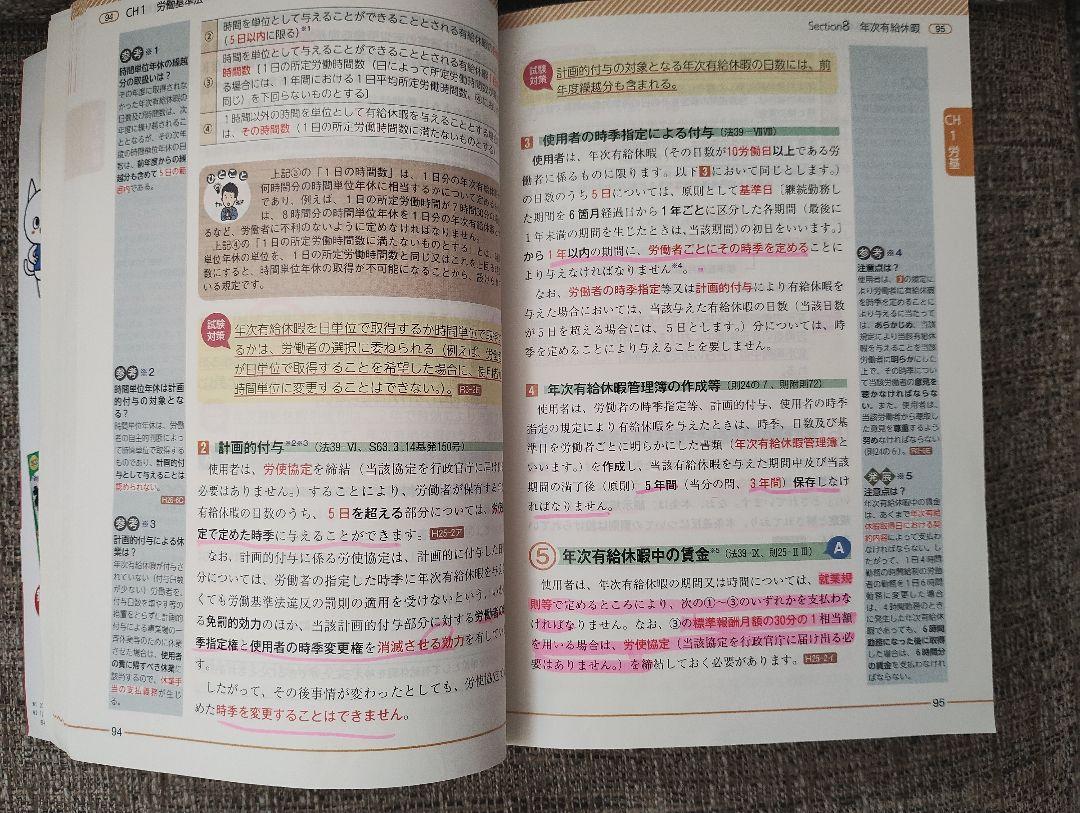 94 CH1 労働基準法
参考 ※1
時間単位年休の繰越
分の取扱いは?
その年度に取得されな
かった年次有給休暇の
日数及び時間数は、次
年度に繰り越されるこ
ととなるが、その次年
度の時間単位年休の日
数は、前年度からの繰
越分も含めて5日の範
囲内である。
参考 ※2
時間単位年休は計画
的付与の対象とな
る?
時間単位年休は、労働
者の自主的判断によっ
て時間単位で取得する
ものであり、計画的付
与として与えることは
認められない。
H26-6C
参考 ※3
計画的付与による休
業は?
年次有給休暇が付与
されていない(付与日数
が少ない)労働者を、
付与日数を増やす等の
措置をとらずに計画的
付与による事業場の一
斉休業等のために休業
させた場合は、使用者
の責に帰すべき休業に
該当するので、休業手
当の支払義務が生じ
る。
② 時間を単位として与えることができることとされる有給休暇の
(5日以内に限る)※1
③ 時間を単位として与えることができることとされる有給休暇
時間数[1日の所定労働時間数(日によって所定労働時間数が
る場合には、1年間における1日平均所定労働時間数。④において
同じ)を下回らないものとする]
④ 1時間以外の時間を単位として有給休暇を与えることとする場合
は、その時間数(1日の所定労働時間数に満たないものとする)
ひとこと
上記③の「1日の時間数」は、1日分の年次有給休暇
何時間分の時間単位年休に相当するかについて定める
であり、例えば、1日の所定労働時間が7時間30分の
は、8時間分の時間単位年休を1日分の年次有給休暇と
るなど、労働者に不利のないように定めなければなりま
上記④の「1日の所定労働時間数に満たないものとする」とは、
単位年休の単位を、1日の所定労働時間数と同じ又はこれを上回る
数にすると、時間単位年休の取得が不可能になることから、設けられ
いる規定です。
試験
対策
年次有給休暇を日単位で取得するか時間単位で取得す
るかは、労働者の選択に委ねられる(例えば、労働者
が日単位で取得することを希望した場合に、使用者が
時間単位に変更することはできない。)。 R5-2E
2 計画的付与※2※3(法39-Ⅵ、S63.3.14基発150号)
使用者は、労使協定を締結(当該協定を行政官庁に届出
必要はありません。)することにより、労働者が保有する
有給休暇の日数のうち、5日を超える部分については、労使
定で定めた時季に与えることができます。 H25-2ア
なお、計画的付与に係る労使協定は、計画的に付与した
分については、労働者の指定した時季に年次有給休暇を与え
くても労働基準法違反の罰則の適用を受けないという、いわ
る免罰的効力のほか、当該計画的付与部分に対する労働者の
季指定権と使用者の時季変更権を消滅させる効力を有してい
す。
したがって、その後事情が変わったとしても、労使協定で
めた時季を変更することはできません。
94
Section8 年次有給休暇 95
試験
対策
計画的付与の対象となる年次有給休暇の日数には、前
年度繰越分も含まれる。
CH
1
労基
3 使用者の時季指定による付与(法39-ⅦⅧ)
使用者は、年次有給休暇(その日数が10労働日以上である労
働者に係るものに限ります。以下3において同じとします。)
の日数のうち5日については、原則として基準日[継続勤務し
た期間を6箇月経過日から1年ごとに区分した各期間(最後に
1年未満の期間を生じたときは、当該期間)の初日をいいます。]
から1年以内の期間に、労働者ごとにその時季を定めることに
より与えなければなりません※4。
なお、労働者の時季指定等又は計画的付与により有給休暇を
与えた場合においては、当該与えた有給休暇の日数(当該日数
が5日を超える場合には、5日とします。)分については、時
季を定めることにより与えることを要しません。
4 年次有給休暇管理簿の作成等(則24の7、則附則72)
使用者は、労働者の時季指定等、計画的付与、使用者の時季
指定の規定により有給休暇を与えたときは、時季、日数及び基
準日を労働者ごとに明らかにした書類(年次有給休暇管理簿と
いいます。)を作成し、当該有給休暇を与えた期間中及び当該
期間の満了後(原則)5年間(当分の間、3年間)保存しなけ
ればなりません。
⑤ 年次有給休暇中の賃金※5(法39-Ⅸ、則25-ⅡⅢ) A
使用者は、年次有給休暇の期間又は時間については、就業規
則等で定めるところにより、次の①~③のいずれかを支払わな
ければなりません。なお、③の標準報酬月額の30分の1相当額
を用いる場合は、労使協定(当該協定を行政官庁に届け出る必
要はありません。)を締結しておく必要があります。 H25-2イ
参考 ※4
注意点は?
使用者は、3の規定に
より労働者に有給休暇
を時季を定めることに
より与えるに当たって
は、あらかじめ、当該
規定により当該有給休
暇を与えることを当該
労働者に明らかにした
上で、その時季につい
て当該労働者の意見を
聴かなければならな
い。また、使用者は、
当該労働者から聴取し
た意見を尊重するよう
努めなければならない
(則24の6)。
発展 ※5
注意点は?
年次有給休暇中の賃金
は、あくまで年次有給
休暇取得日における契
約内容によって支払わ
なければならない。し
たがって、1日4時間
勤務の時間給制の労働
者の勤務を1日6時間
勤務に変更した場合
は、4時間勤務のとき
に発生した年次有給休
暇であっても、6時間
勤務になった後に取得
した場合は、6時間分
の賃金を支払わなけれ
ばならない。
95